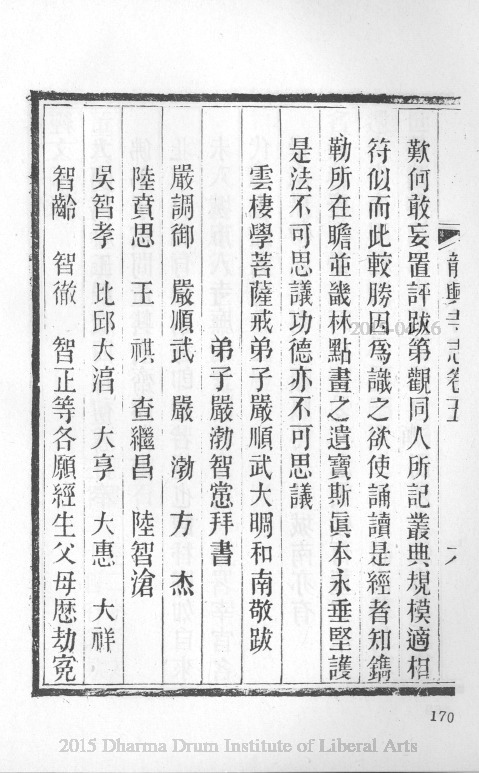 龍興寺志卷五
歎何敢妄置評跋第觀同人所記叢典規模適相
符似而此較勝因為識之欲使誦讀是經者知鐫
勒所在瞻並畿林點畫之遺寶斯眞本永垂堅護
是法不可思議功德亦不可思議
雲棲學菩薩戒弟子嚴順武大明和南敬跋
弟子嚴渤智㦎拜書
嚴調御 嚴順武 嚴 渤 方 杰
陸賁思 王 祺 查繼昌 陸智滄
吳智孝 比邱大涓 大享 大惠 大祥
智齡 智徹 智正等各願經生父母歷劫冤
170
2015 Dharma Drum Institute of Liberal Arts